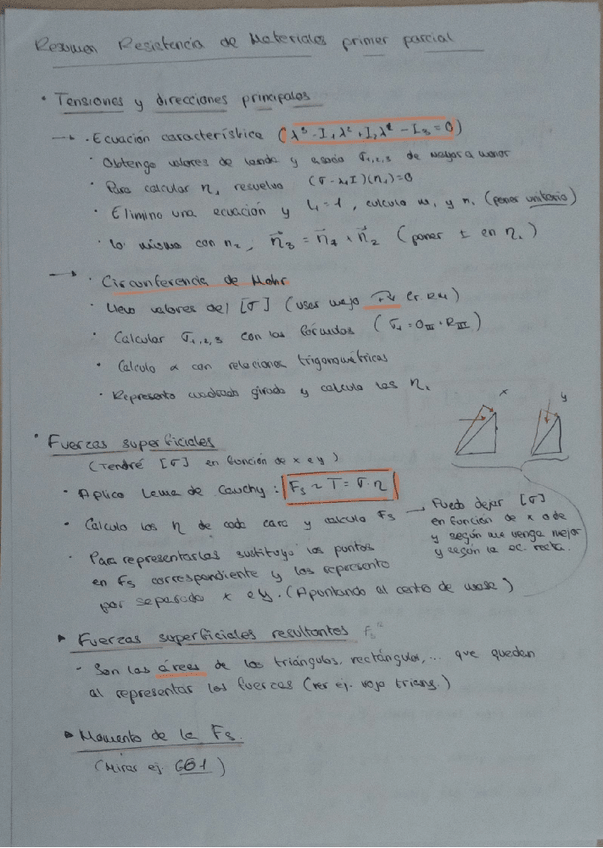 Resumen Resistencia de Materiales primer parcial
• Tensiones y direcciones principales
→ • Ecuación característica (λ³ - I₁λ² + I₂λ - I₃ = 0)
• Obtengo valores de landa y asocio σ₁,₂,₃ de mayor a menor
• Para calcular n₁ resuelvo (σ - λ₁I)(n₁) = 0
• Elimino una ecuación y l₁ = 1, calculo m₁ y n₁ (poner unitario)
• Lo mismo con n₂, n⃗₃ = n⃗₁ × n⃗₂ (poner ± en n₁)
→ • Circunferencia de Mohr
• Llevo valores del [σ]
• Calcular σ₁,₂,₃ con las fórmulas (σ₁ = O_III + R_III)
• Calculo α con relaciones trigonométricas
• Represento cuadrado girado y calculo las n₁
x y
• Fuerzas superficiales
(Tendré [σ] en función de x e y)
• Aplico Lema de Cauchy: Fs ~ T = σ · n
• Calculo los n de cada cara y calculo Fs → Puedo dejar [σ]
en función de x o de
y según me venga mejor
y según la ec. recta.
• Para representarlas sustituyo los puntos
en Fs correspondiente y las represento
por separado x e y. (Apuntando al centro de)
▸ Fuerzas superficiales resultantes Fs
- Son las áreas de los triángulos, rectángulos, ... que quedan
al representar las fuerzas (ver ej. triang.)
▸ Momento de la Fs.
(Mirar ej. 661)